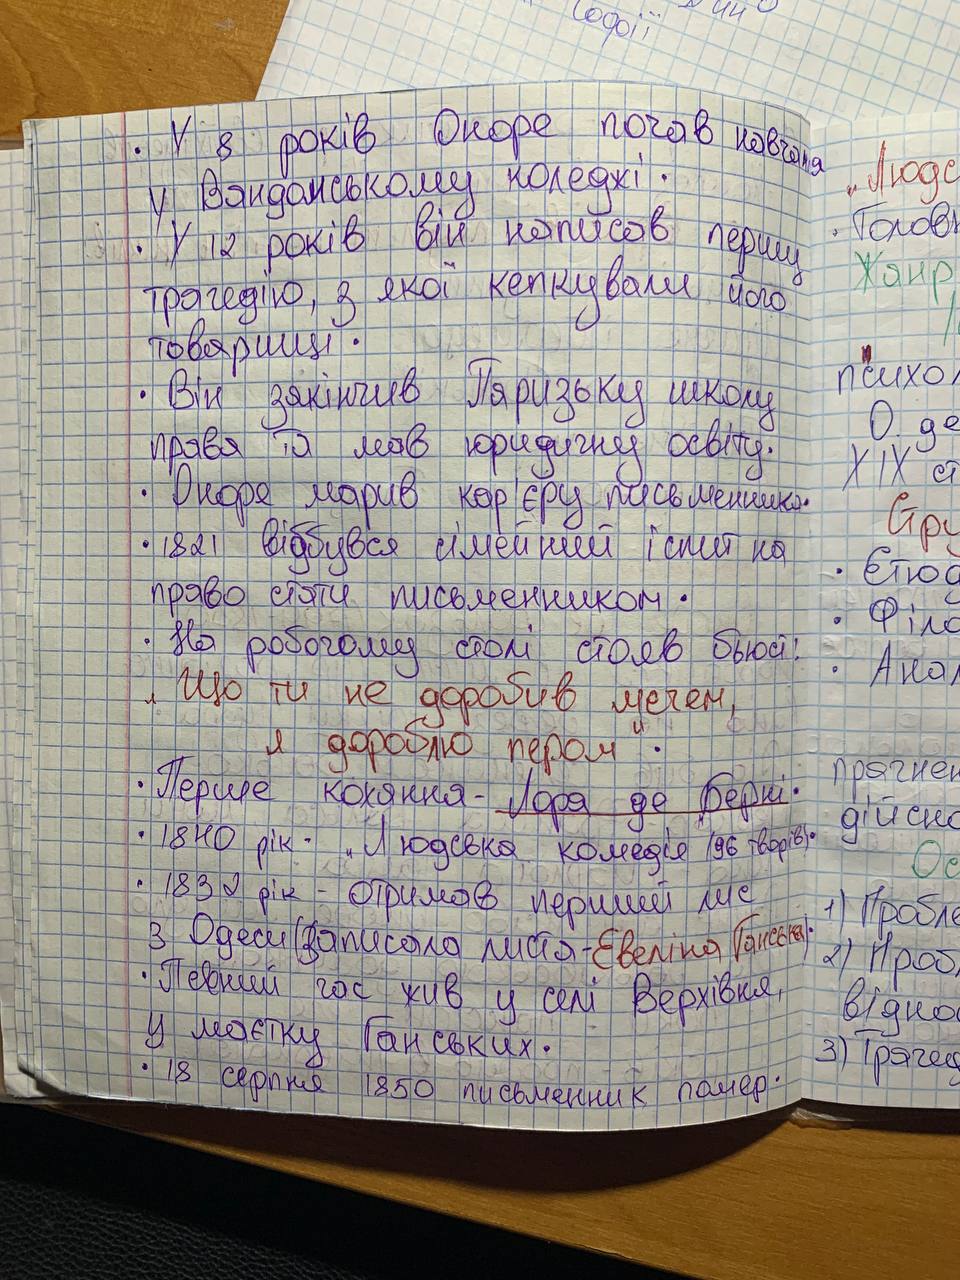 · У 8 років Оноре почав навчання
у Вандомському коледжі.
· У 12 років він написав першу
трагедію, з якої кепкували його
товариші.
· Він закінчив Паризьку школу
права та мав юридичну освіту.
· Оноре марив кар'єру письменника.
· 1821 відбувся сімейний іспит на
право стати письменником.
· На робочому столі стояв бюст:
„ Що ти не доробив мечем,
я дороблю пером".
· Перше кохання - Лора де Берні.
· 1840 рік - „Людська комедія (96 творів).
· 1832 рік - отримав перший лис
з Одеси (записала листа - Евеліна Ганська).
· Певний час жив у селі Верхівня,
у маєтку Ганських.
· 18 серпня 1850 письменник помер.
„Людс
· Головн
Жанр
психол
О. де
XIX ст
Стру
· Етюд
· Філо
· Анал
прагнен
дійсно
Ос
1) Пробле
2) Проб
відно
3) Трагед